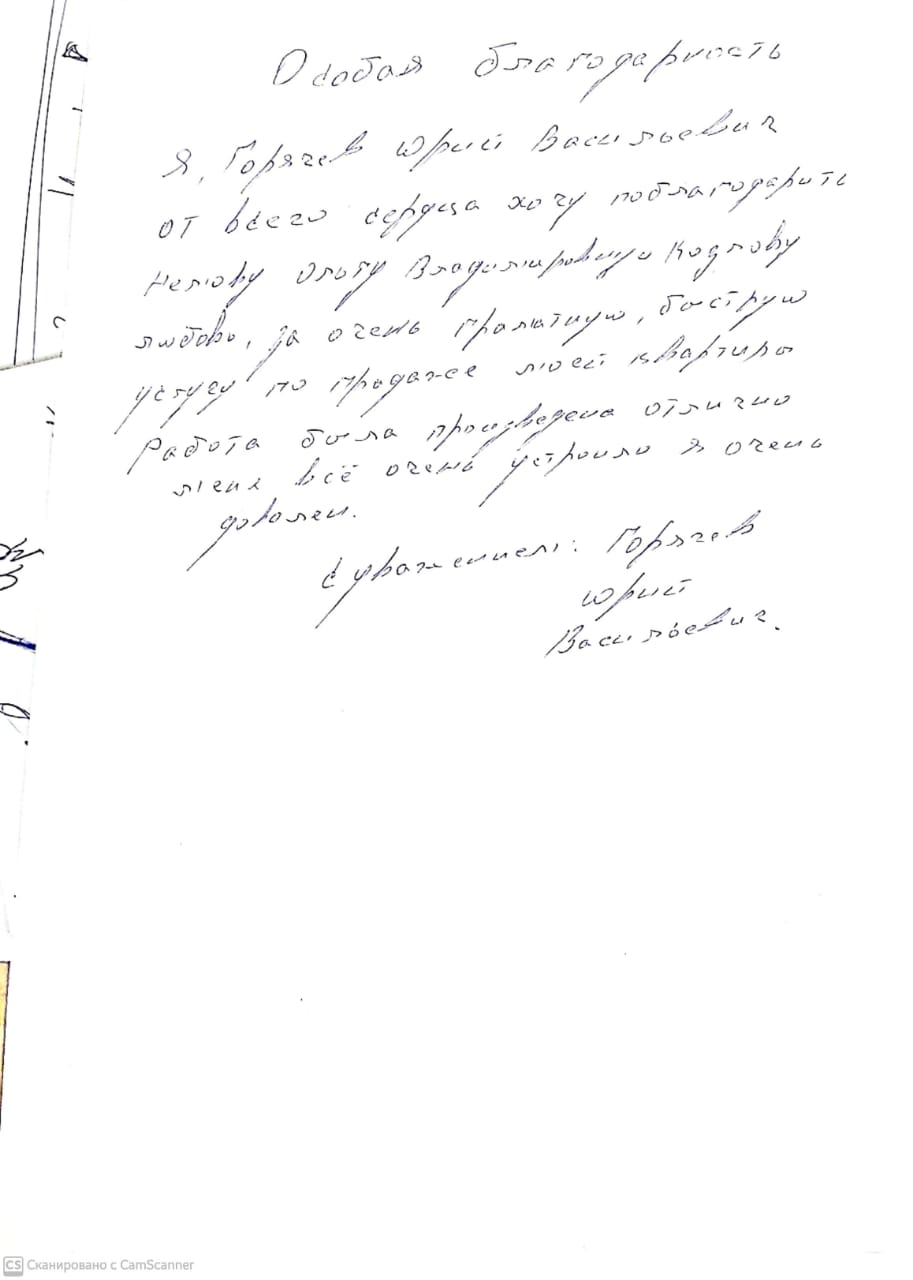 Особая благодарность
Я, Горячев Юрий Васильевич
от всего сердца хочу поблагодарить
Ольгу Владимировну
Любовь, за очень грамотную, быструю
услугу по продаже моей квартиры
Работа была произведена отлично
меня всё очень устроило я очень
доволен.
С уважением: Горячев
Юрий
Васильевич.
CS Сканировано с CamScanner